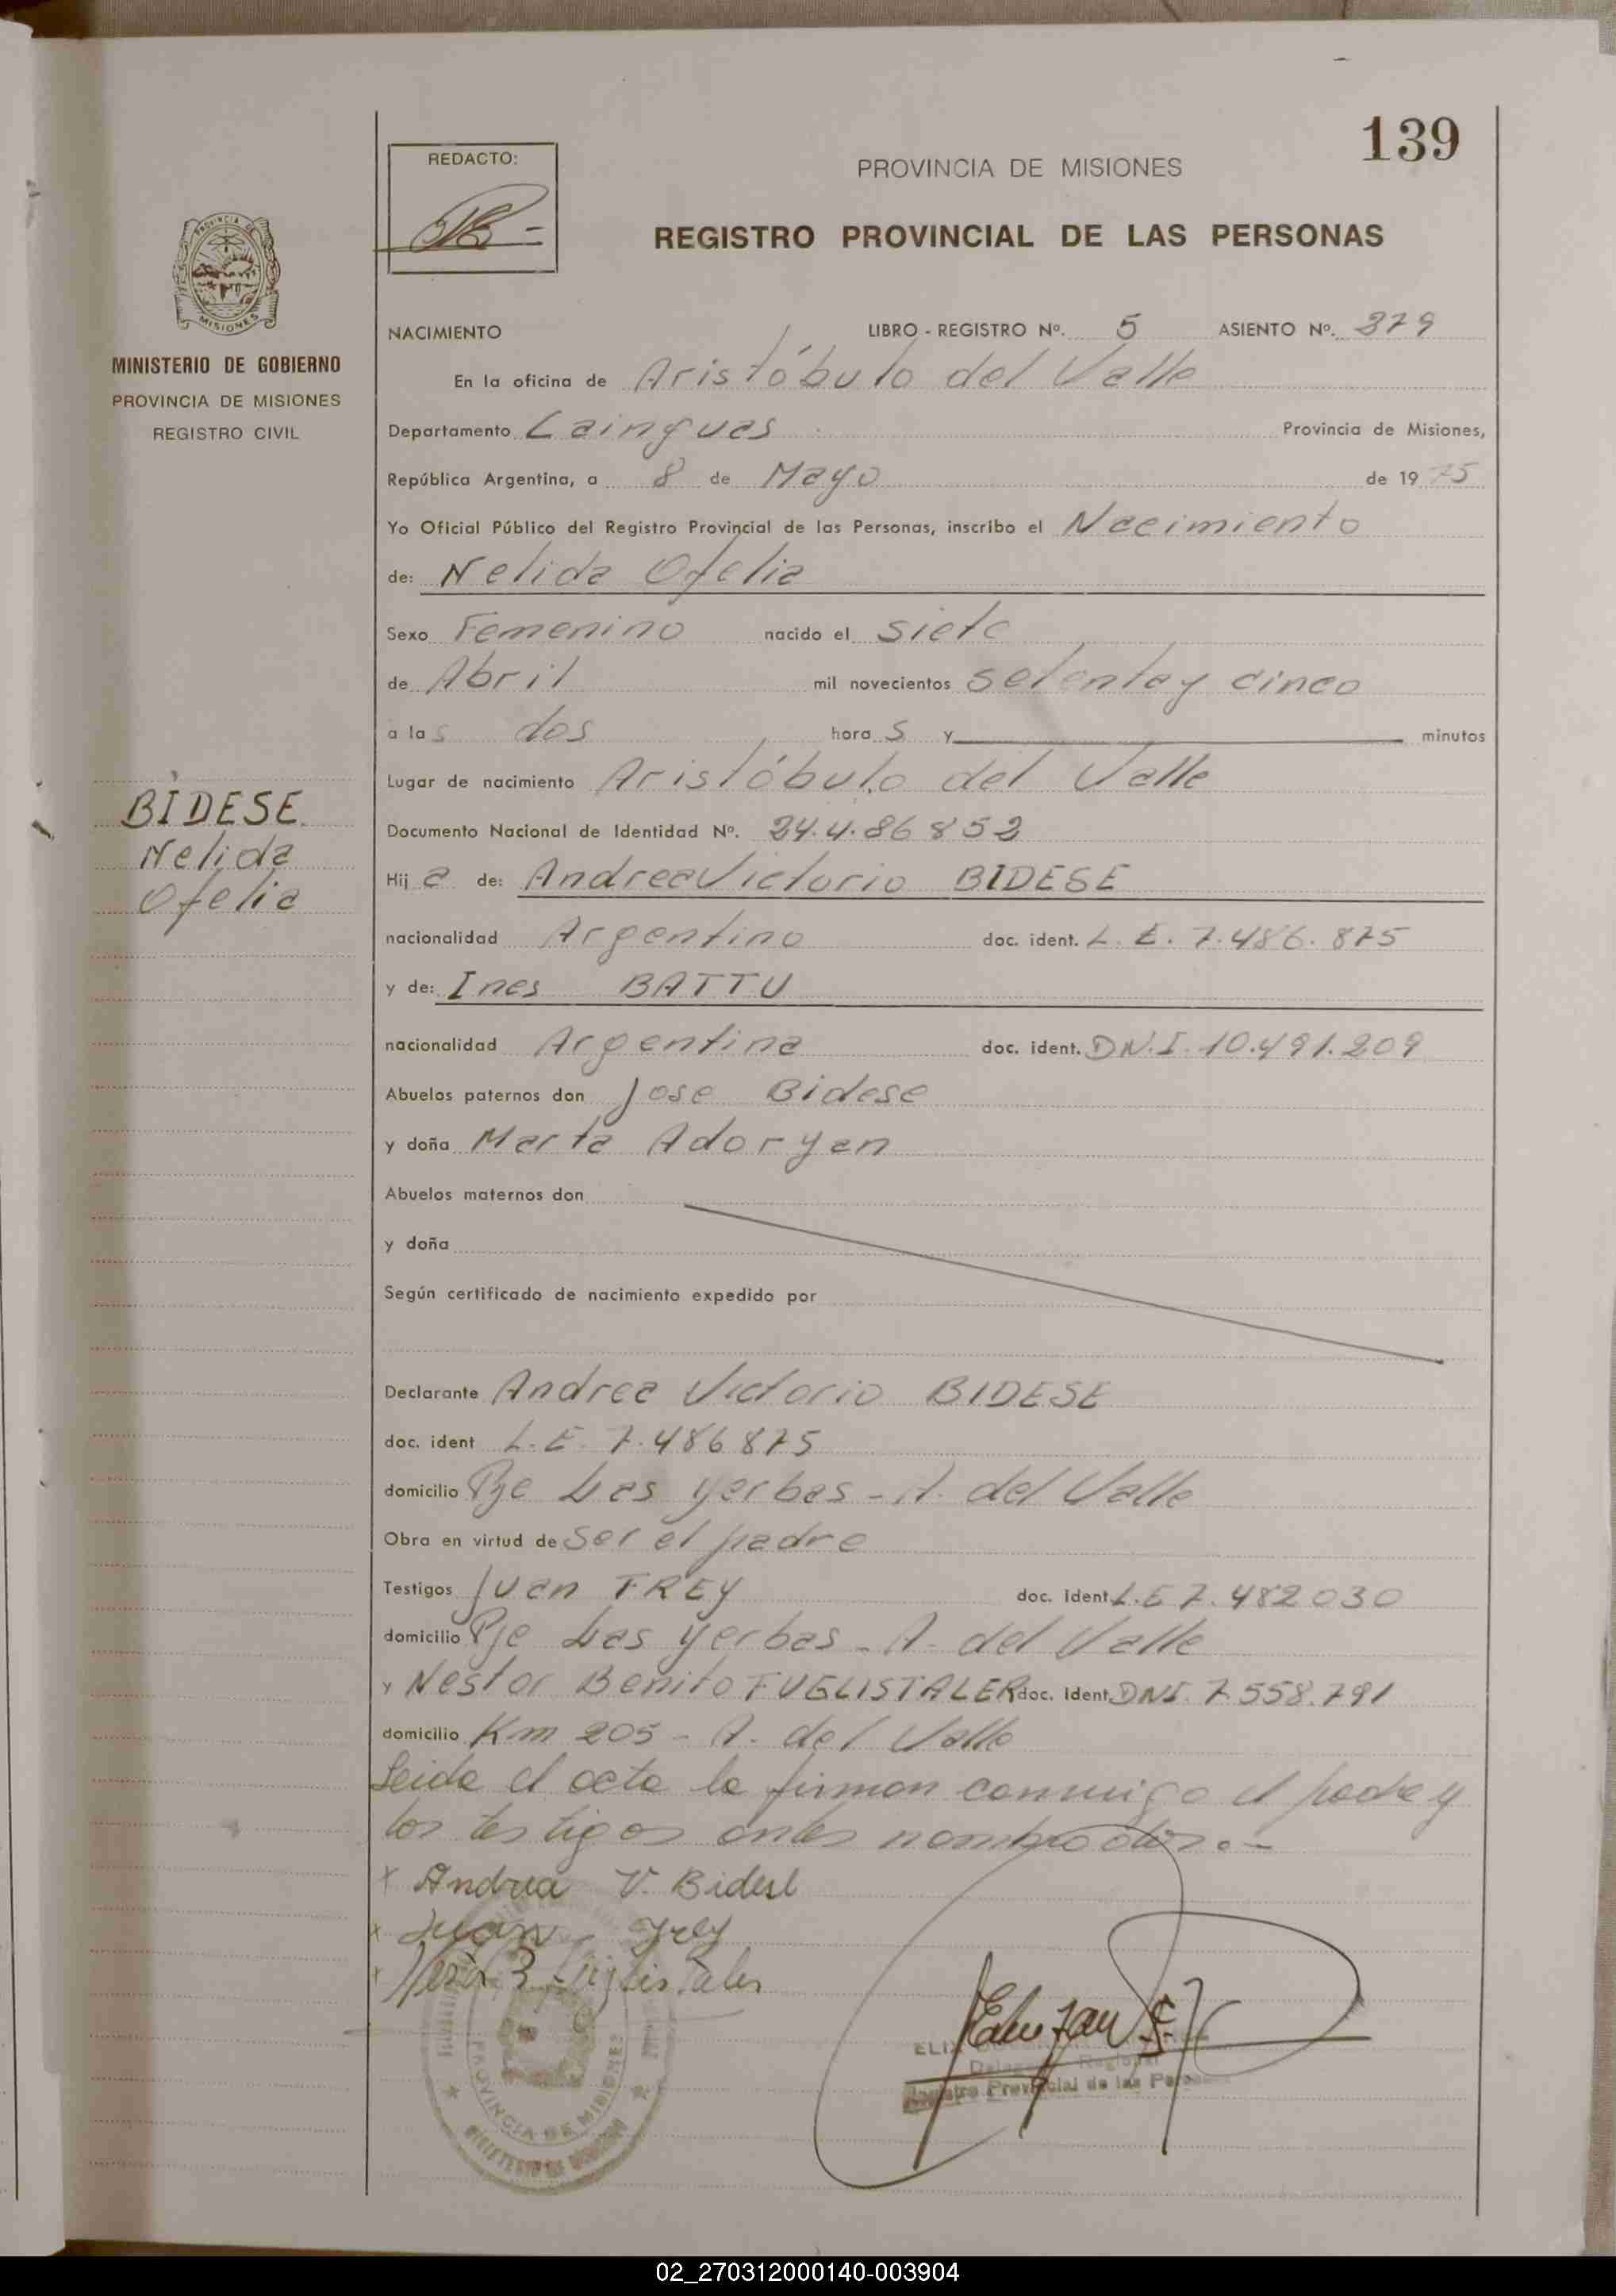 139
REDACTO:
PROVINCIA DE MISIONES
REGISTRO PROVINCIAL DE LAS PERSONAS
MISIONES
MINISTERIO DE GOBIERNO
PROVINCIA DE MISIONES
REGISTRO CIVIL
NACIMIENTO LIBRO - REGISTRO Nº. 5 ASIENTO Nº. 379
En la oficina de Aristóbulo del Valle
Departamento Cainguas Provincia de Misiones,
República Argentina, a 8 de Mayo de 1975
Yo Oficial Público del Registro Provincial de las Personas, inscribo el Nacimiento
de: Nelida Ofelia
Sexo Femenino nacido el siete
de Abril mil novecientos setenta y cinco
a las dos horas y minutos
Lugar de nacimiento Aristóbulo del Valle
BIDESE
Nelida
Ofelia
Documento Nacional de Identidad Nº. 24.4.86852
Hija de: Andrea Victorio BIDESE
nacionalidad Argentino doc. ident. L. E. 7.486.875
y de: Ines BATTU
nacionalidad Argentina doc. ident. D.N.I. 10.491.209
Abuelos paternos don Jose Bidese
y doña Marta Adoryan
Abuelos maternos don
y doña
Según certificado de nacimiento expedido por
Declarante Andrea Victorio BIDESE
doc. ident L.E 7.486875
domicilio Pje Las Yerbas - A. del Valle
Obra en virtud de ser el padre
Testigos Juan FREY doc. ident. L.E 7.482030
domicilio Pje Las Yerbas - A. del Valle
y Nestor Benito FUGLISTALER doc. ident. DNI. 7.558.791
domicilio Km 205 - A. del Valle
Leida el acta la firman conmigo el padre y
los testigos antes nombrados.-
x Andrea V. Bidese
x Juan Frey
x
PROVINCIA DE MISIONES
Delegado Regional
Registro Provincial de las Personas
02_270312000140-003904